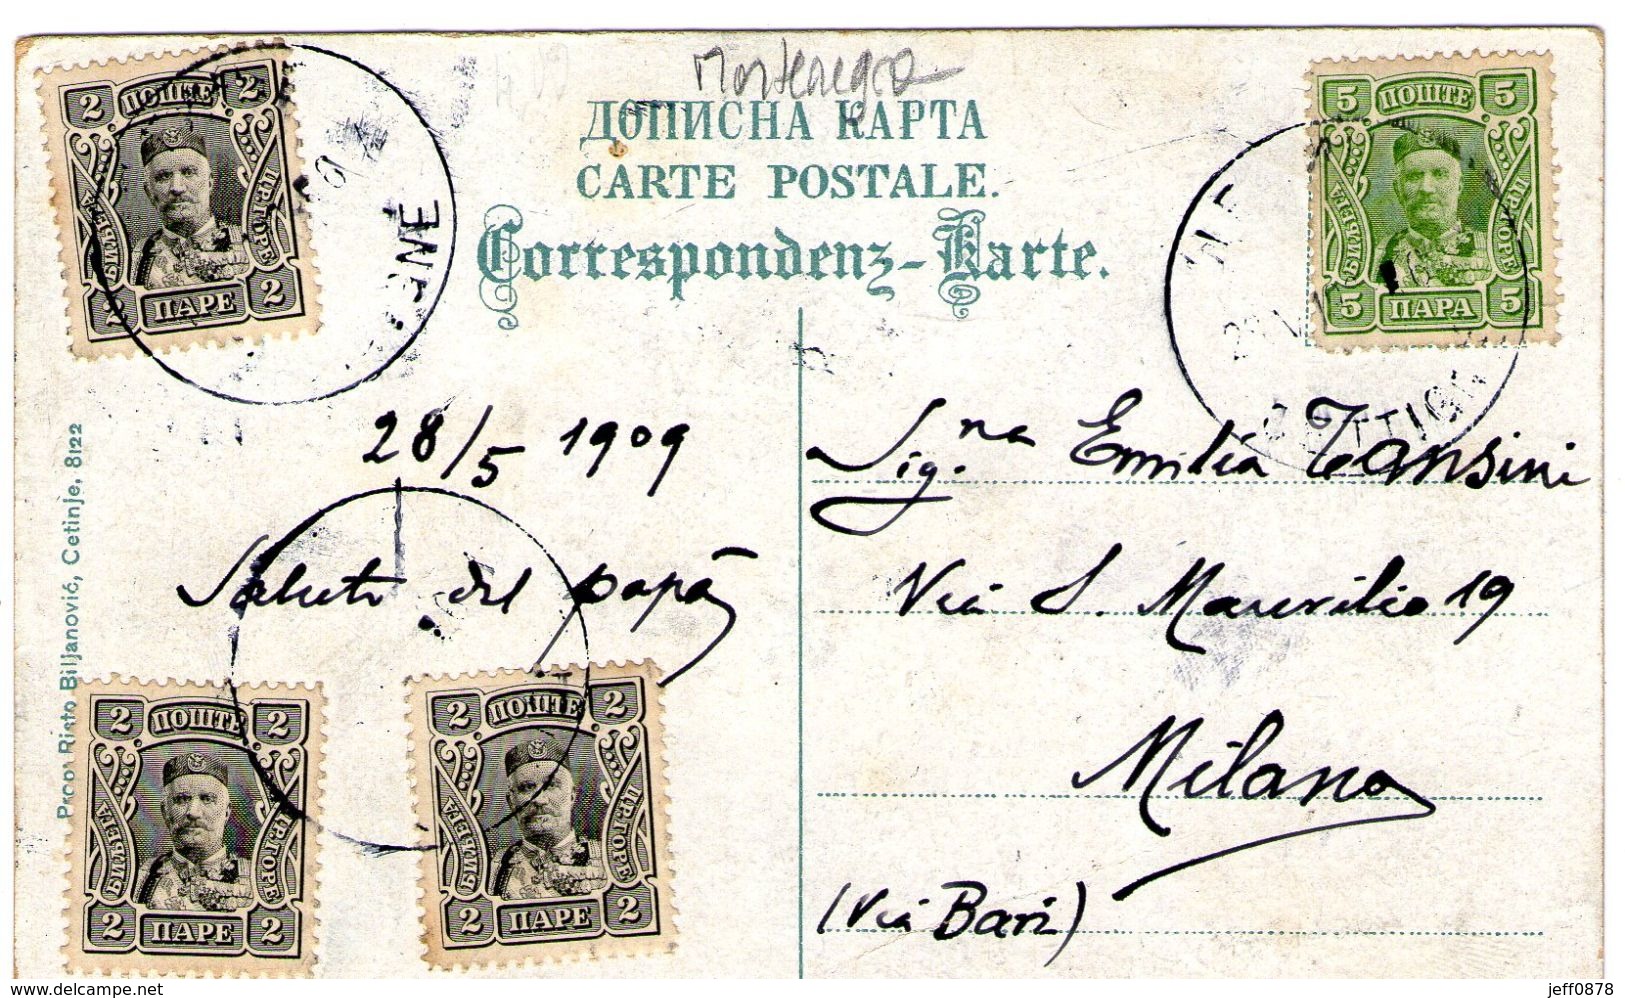 Montenegro
ДОПИСНА КАРТА
CARTE POSTALE.
Correspondenz-Karte.
2 ПОШТЕ 2
ЦР.ГОРЕ
2 ПАРЕ 2
5 ПОШТЕ 5
ЦР.ГОРЕ
5 ПАРА 5
28/5 1909
Saluti dal papà
Sig.na Emilia Tansini
Via S. Maurilio 19
Milano
(Via Bari)
Risto Biljanović, Cetinje, 8122
2 ПОШТЕ 2
ЦР.ГОРЕ
2 ПАРЕ 2
2 ПОШТЕ 2
ЦР.ГОРЕ
2 ПАРЕ 2
www.delcampe.net
jeff0878